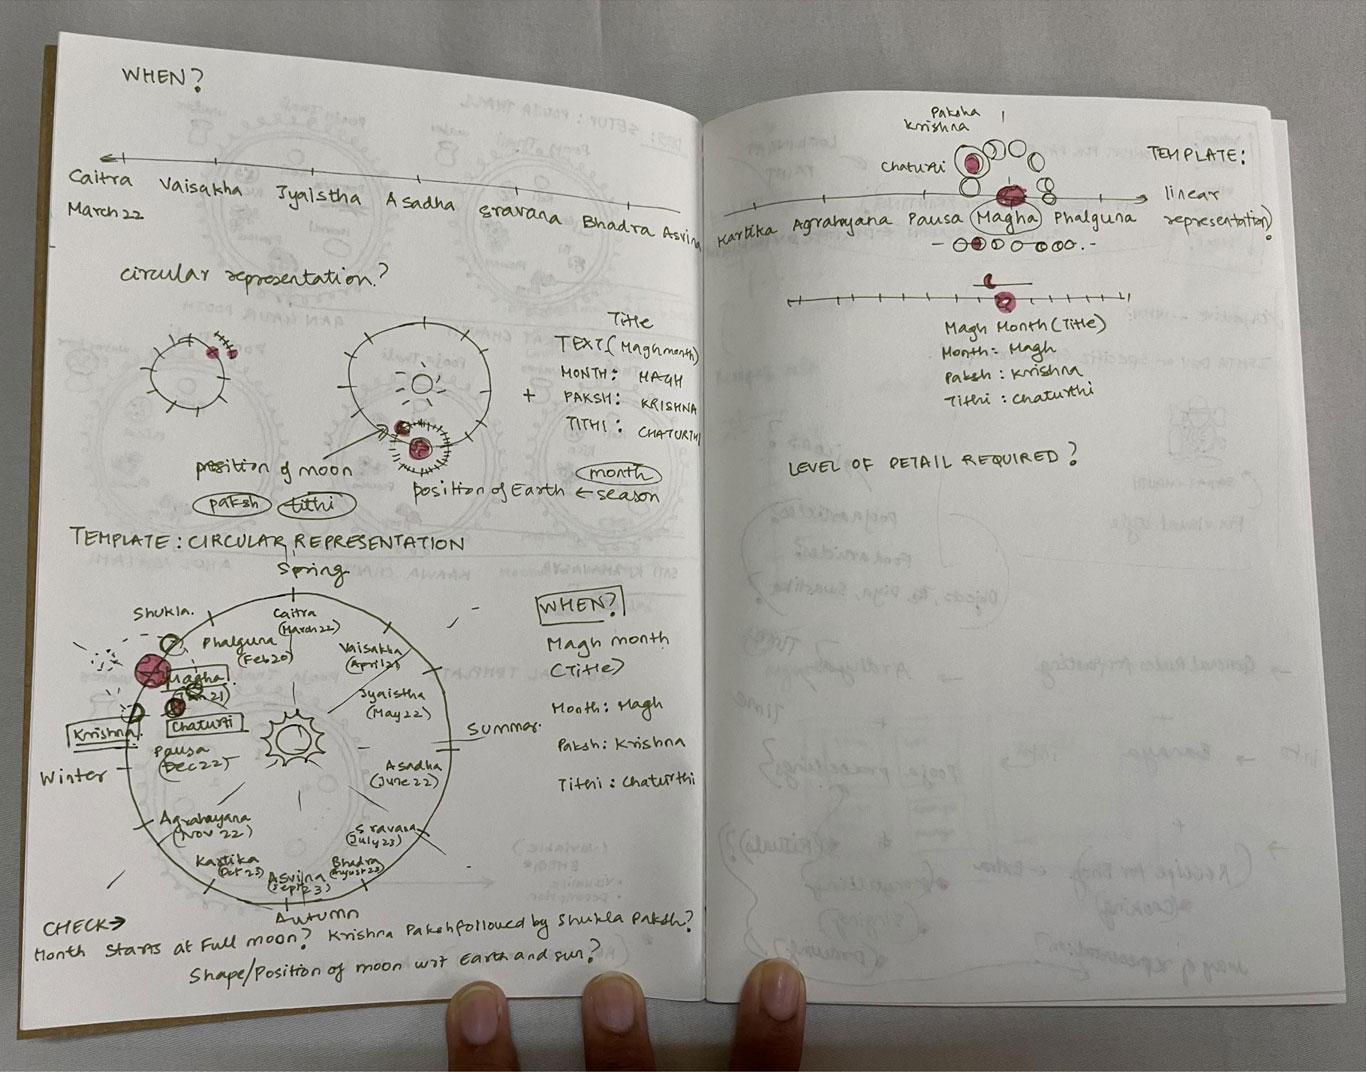 WHEN?
Caitra Vaisakha Jyaistha Asadha Sravana Bhadra Asvina
March 22
circular representation?
Title
TEXT (Magh month)
MONTH: MAGH
+ PAKSH: KRISHNA
TITHI: CHATURTHI
position of moon
paksh tithi
month
position of Earth ← season
TEMPLATE: CIRCULAR REPRESENTATION
Spring
Shukla.
Caitra
(March 22)
Phalguna
(Feb 20)
Vaisakha
(April 21)
Magha
(Jan 21)
Jyaistha
(May 22)
Krishna
Chaturti
Summar.
Pausa
(Dec 22)
Winter
Asadha
(June 22)
Agrahayana
(Nov 22)
Sravana
(July 23)
Kartika
(Oct 23)
Asvina
(Sept 23)
Bhadra
(August 23)
Autumn
WHEN?
Magh month
(Title)
Month: Magh
Paksh: Krishna
Tithi: Chaturthi
CHECK→
Month Starts at Full moon? Krishna Paksh followed by Shukla Paksh?
Shape/Position of moon wrt Earth and sun?
Paksha
Krishna
Chaturthi
TEMPLATE:
linear
representation?
Kartika Agrahayana Pausa Magha Phalguna
Magh Month (Title)
Month: Magh
Paksh: Krishna
Tithi: Chaturthi
LEVEL OF DETAIL REQUIRED?